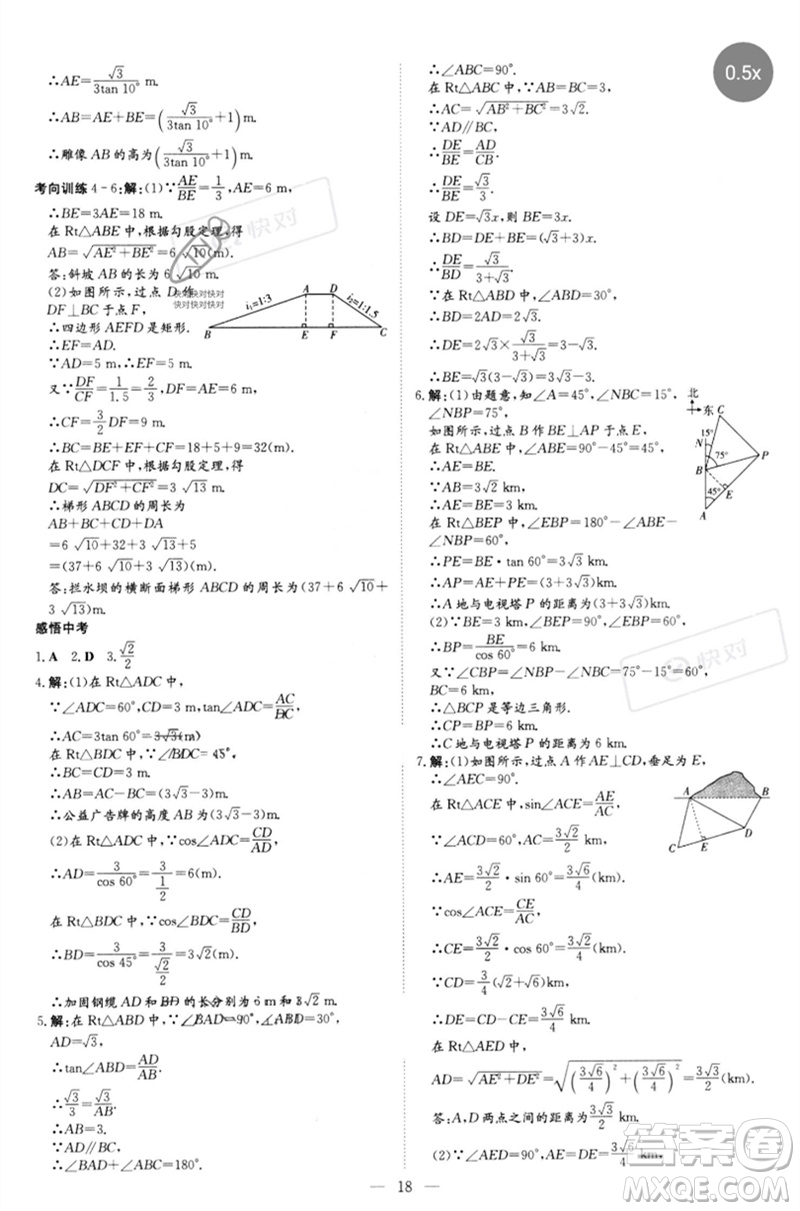 ∴AE=√3/(3tan 10°) m.
∴AB=AE+BE=(√3/(3tan 10°)+√3/3)m.
∴雕像 AB 的高为(√3/(3tan 10°)+√3/3)m.
考向训练 4-6:解:(1)∵AE/BE=1/3,AE=6 m,
∴BE=3AE=18 m.
在 Rt△ABE 中,根据勾股定理,得
AB=√(AE²+BE²)=6√10(m).
答:斜坡 AB 的长为 6√10 m.
(2)如图所示,过点 D 作
DF⊥BC 于点 F,
∴四边形 AEFD 是矩形.
∴EF=AD.
∵AD=5 m,∴EF=5 m.
又∵DF/CF=1/1.5=2/3,
∴CF=3/2 DF=9 m.
∴BC=BE+EF+CF=18+5+9=32(m).
在 Rt△DCF 中,根据勾股定理,得
DC=√(DF²+CF²)=3√13(m).
∴梯形 ABCD 的周长为
AB+BC+CD+DA
=6√10+32+3√13+5
=(37+6√10+3√13)(m).
答:拦水坝的横断面梯形 ABCD 的周长为(37+6√10+
3√13)m.
i₁=1:3
i₂=1:1.5
A D
B E F C
感悟中考
1. A 2. D 3. √2/2
4. 解:(1)在 Rt△ADC 中,
∵∠ADC=60°,CD=3 m,tan∠ADC=AC/DC,
∴AC=3tan 60°=3√3(m)
在 Rt△BDC 中,∵∠BDC=45°,
∴BC=CD=3 m.
∴AB=AC-BC=(3√3-3)m.
∴公益广告牌的高度 AB 为(3√3-3)m.
(2)在 Rt△ADC 中,∵cos∠ADC=CD/AD,
∴AD=3/cos 60°=3/(1/2)=6(m).
在 Rt△BDC 中,∵cos∠BDC=CD/BD,
∴BD=3/cos 45°=3/(√2/2)=3√2(m).
∴加固钢缆 AD 和 BD 的长分别为 6 m 和 3√2 m.
5. 解:在 Rt△ABD 中,∵∠BAD=90°,∠ABD=30°,
AD=√3,
∴tan∠ABD=AD/AB.
∴√3/3=√3/AB.
∴AB=3.
∵AD∥BC,
∴∠BAD+∠ABC=180°.
∴∠ABC=90°.
在 Rt△ABC 中,∵AB=BC=3,
∴AC=√(AB²+BC²)=3√2.
∵AD∥BC,
∴DE/BE=AD/CB.
∴DE/BE=√3/3.
设 DE=√3x,则 BE=3x.
∴BD=DE+BE=(√3+3)x.
∴DE/BD=√3/(3+√3).
∵在 Rt△ABD 中,∠ABD=30°,
∴BD=2AD=2√3.
∴DE=2√3×√3/(3+√3)=3-√3.
∴DE的长为 3-√3.
6. 解:(1)由题意,知∠A=45°,∠NBC=15°,
∠NBP=75°,
如图所示,过点 B 作 BE⊥AP 于点 E,
∴∠AEB=90°,∠ABE=90°-45°=45°.
∴AE=BE.
∵AB=6 km,
∴AE=BE=3√2 km.
在 Rt△BEP 中,∠EBP=180°-∠ABE-
∠NBP=60°,
∴PE=BE·tan 60°=3√6(km).
∴AP=AE+PE=(3√2+3√6)km.
∴A 地与电视塔 P 的距离为(3√2+3√6)km.
(2)∵BE=3√2 km,∠EBP=60°,
∴BP=BE/cos 60°=6√2(km).
又∵∠CBP=∠NBP-∠NBC=75°-15°=60°,
北
东
C
15°
N
75°
P
B
45°
E
A
∴△BCP 是等边三角形.
7. 解:(1)如图所示,过点 A 作 AE⊥CD,垂足为 E,
∴∠AEC=90°.
在 Rt△ACE 中,sin∠ACE=AE/AC,
∵∠ACD=60°,AC=3√2/2 km,
∴AE=3√2/2·sin 60°=3√6/4(km).
∵cos∠ACE=CE/AC,
∴CE=3√2/2·cos 60°=3√2/4(km).
A B
D
C E
∴DE=CD-CE=3√6/4 km.
在 Rt△AED 中,
答:A,D 两点之间的距离为3√3/2 km.
(2)∵∠AED=90°,AE=DE=3√6/4 km,
18
0.5x
快对
答案卷